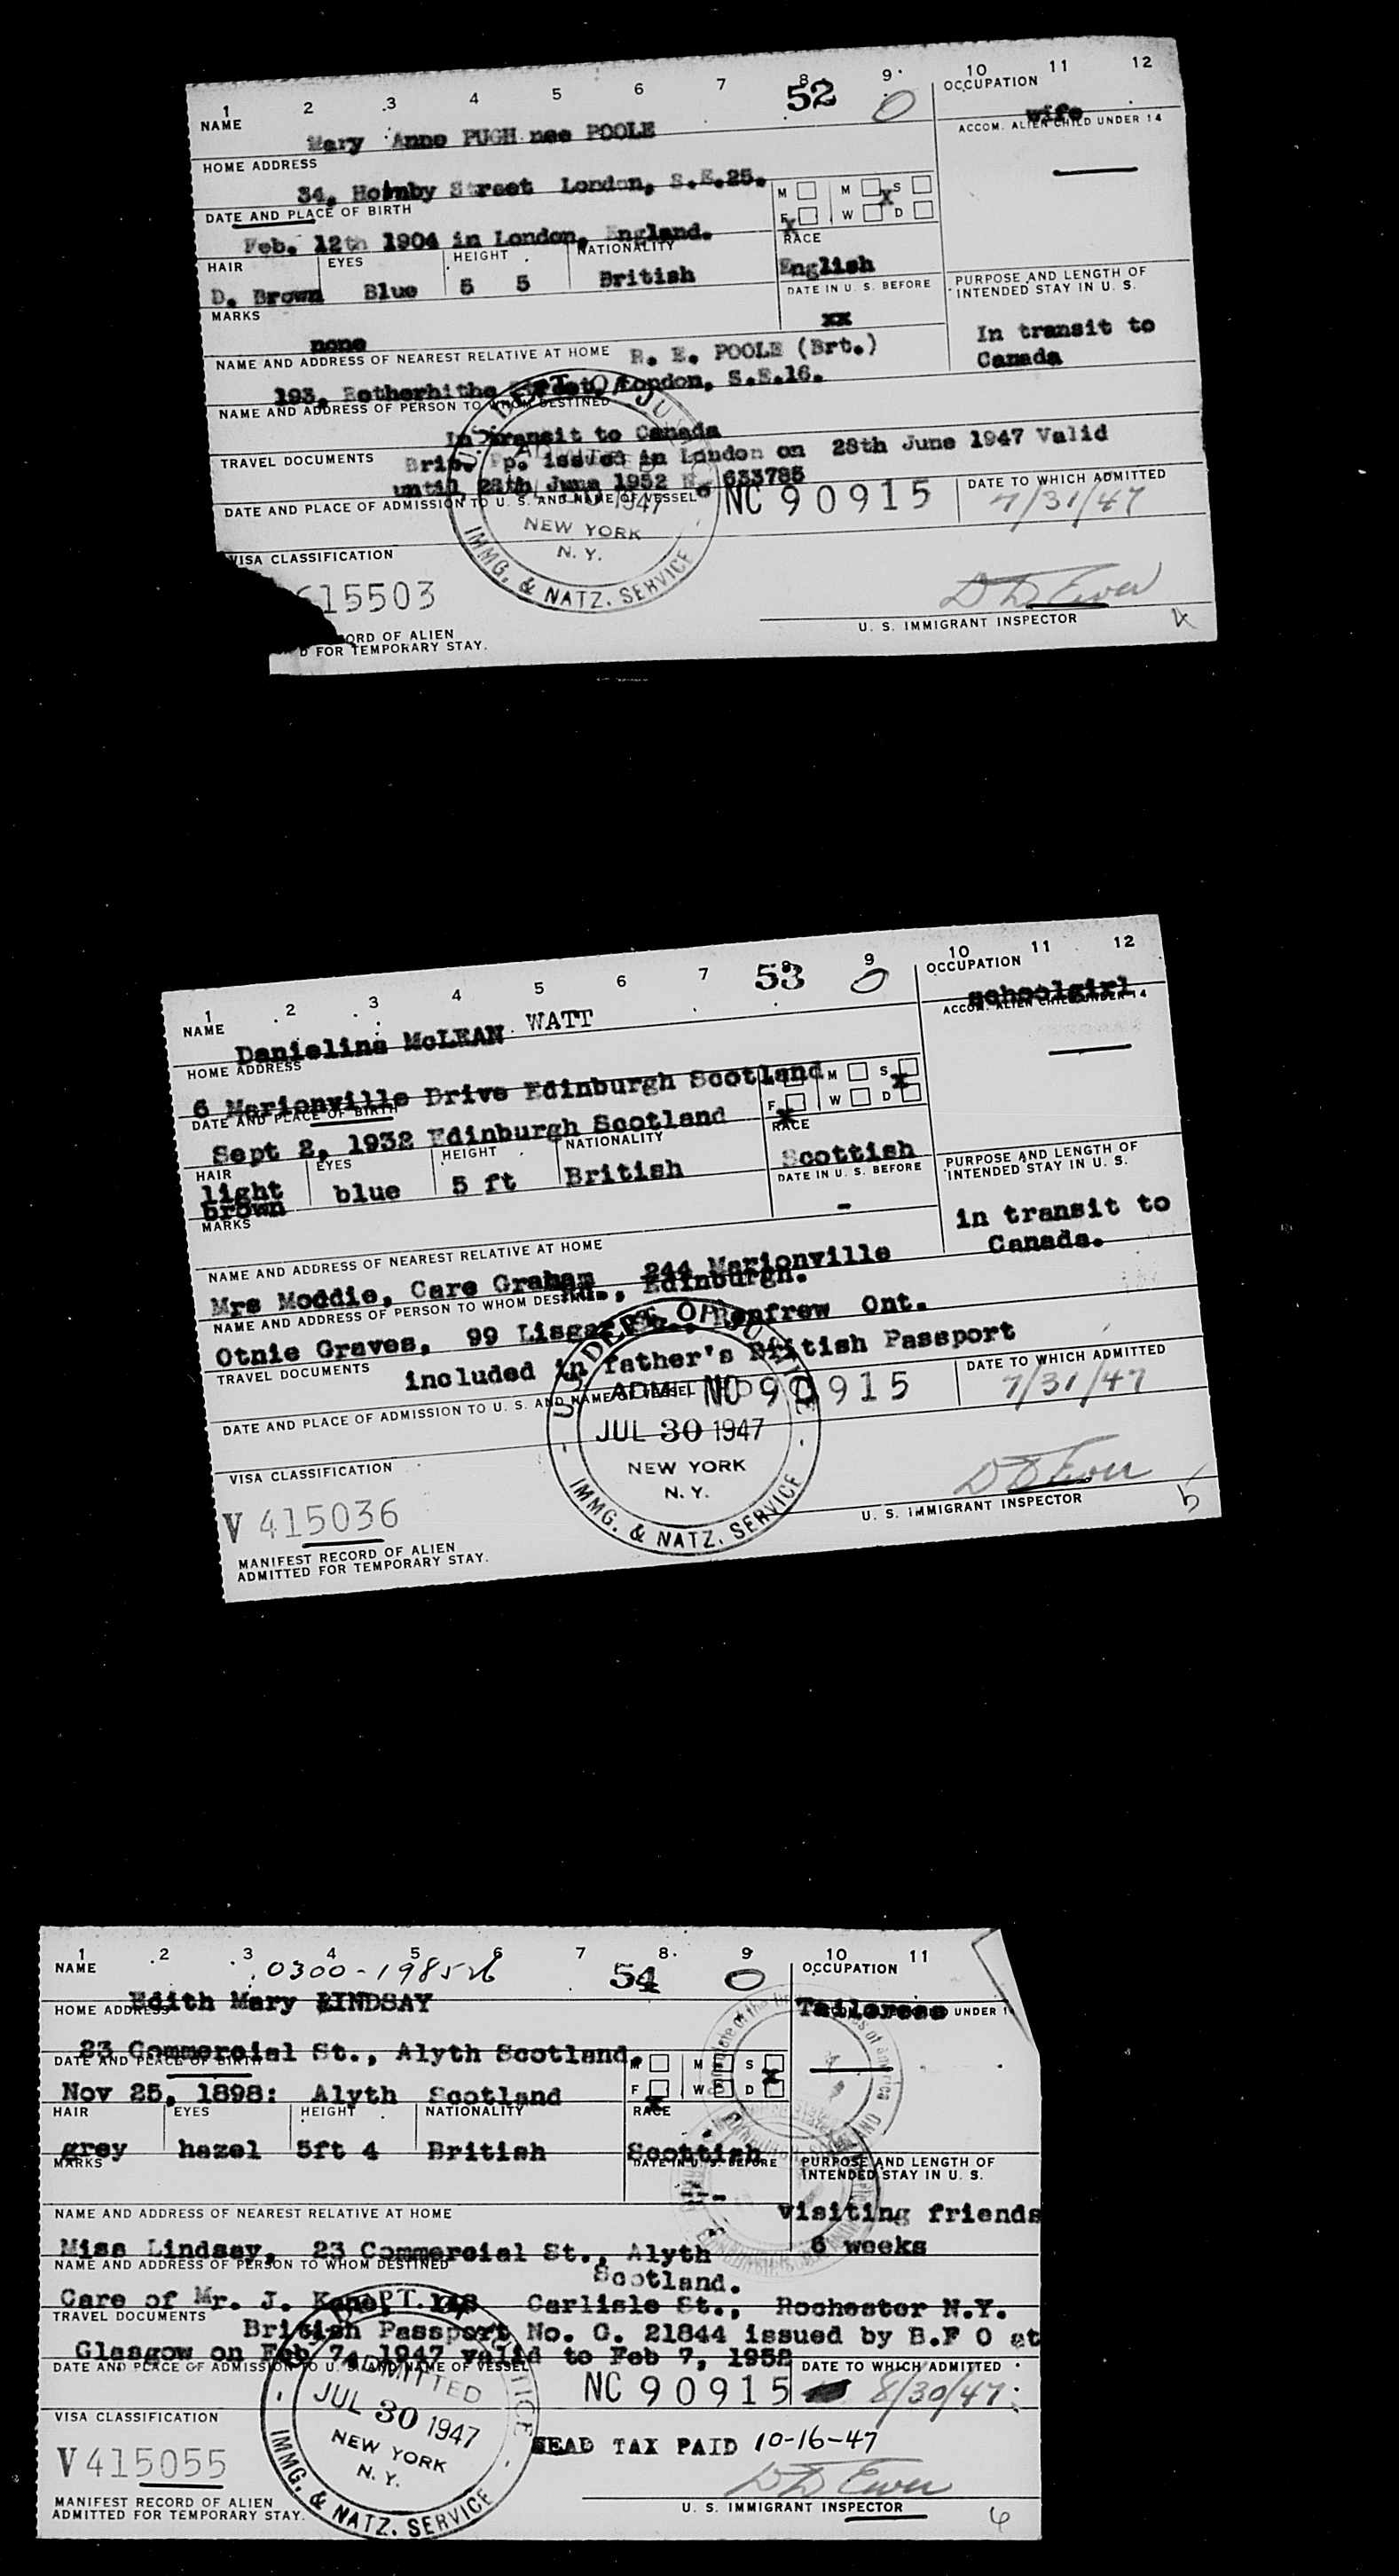 1 2 3 4 5 6 7 8 9 10 11 12
52 0
NAME
Mary Anne PUGH nee POOLE
OCCUPATION
wife
ACCOM. ALIEN CHILD UNDER 14
HOME ADDRESS
34, Hornby Street London, S.E.25.
M M S
F W D
X X
DATE AND PLACE OF BIRTH
Feb. 12th 1904 in London, England.
HAIR EYES HEIGHT NATIONALITY RACE
D. Brown Blue 5 5 British English
DATE IN U. S. BEFORE
xx
PURPOSE AND LENGTH OF
INTENDED STAY IN U. S.
In transit to
Canada
MARKS
none
NAME AND ADDRESS OF NEAREST RELATIVE AT HOME R. E. POOLE (Brt.)
193, Rotherhithe Street, London, S.E.16.
NAME AND ADDRESS OF PERSON TO WHOM DESTINED
In transit to Canada
TRAVEL DOCUMENTS Brit. Pp. issued in London on 28th June 1947 Valid
until 28th June 1952 633785
DATE AND PLACE OF ADMISSION TO U. S. AND NAME OF VESSEL NC 90915
DATE TO WHICH ADMITTED
7/31/47
1947
NEW YORK
N. Y.
IMMG. & NATZ. SERVICE
VISA CLASSIFICATION
15503
ORD OF ALIEN
D FOR TEMPORARY STAY.
U. S. IMMIGRANT INSPECTOR
1 2 3 4 5 6 7 9 10 11 12
53 0
NAME
Danielina McLEAN WATT
OCCUPATION
schoolgirl
ACCOM. ALIEN CHILD UNDER 14
HOME ADDRESS
6 Marionville Drive Edinburgh Scotland
M S
F W D
X X
DATE AND PLACE OF BIRTH
Sept 2, 1932 Edinburgh Scotland
HAIR EYES HEIGHT NATIONALITY RACE
light
brown blue 5 ft British Scottish
DATE IN U. S. BEFORE
-
PURPOSE AND LENGTH OF
INTENDED STAY IN U. S.
in transit to
Canada.
MARKS
NAME AND ADDRESS OF NEAREST RELATIVE AT HOME
Mrs Moddie, Care Graham 244 Marionville
Edinburgh.
NAME AND ADDRESS OF PERSON TO WHOM DESTINED
Otnie Graves, 99 Lisgar St., Renfrew Ont.
TRAVEL DOCUMENTS included in father's British Passport
DATE AND PLACE OF ADMISSION TO U. S. AND NAME OF VESSEL NC 90915
DATE TO WHICH ADMITTED
7/31/47
U. S. DEPT. OF JUSTICE
ADMITTED
JUL 30 1947
NEW YORK
N. Y.
IMMG. & NATZ. SERVICE
VISA CLASSIFICATION
V 415036
MANIFEST RECORD OF ALIEN
ADMITTED FOR TEMPORARY STAY.
U. S. IMMIGRANT INSPECTOR
5
1 2 3 4 5 6 7 8 9 10 11
54 0
NAME 0300-198526
Edith Mary LINDSAY
OCCUPATION
Tailoress
UNDER 1
HOME ADDRESS
23 Commercial St., Alyth Scotland.
M M S
F W D
X X
DATE AND PLACE OF BIRTH
Nov 25, 1898: Alyth Scotland
HAIR EYES HEIGHT NATIONALITY RACE
grey hazel 5ft 4 British Scottish
MARKS
DATE IN U. S. BEFORE
---
PURPOSE AND LENGTH OF
INTENDED STAY IN U. S.
visiting friends
6 weeks
NAME AND ADDRESS OF NEAREST RELATIVE AT HOME
Miss Lindsay, 23 Commercial St., Alyth
Scotland.
NAME AND ADDRESS OF PERSON TO WHOM DESTINED
Care of Mr. J. Carlisle St., Rochester N.Y.
TRAVEL DOCUMENTS
British Passport No. C. 21844 issued by B.F O at
Glasgow on Feb 7, 1947 valid to Feb 7, 1952
DATE AND PLACE OF ADMISSION TO U. S. AND NAME OF VESSEL
NC 90915
DATE TO WHICH ADMITTED
8/30/47
ADMITTED
JUL 30 1947
NEW YORK
N. Y.
IMMG. & NATZ. SERVICE
VISA CLASSIFICATION
HEAD TAX PAID 10-16-47
V 415055
MANIFEST RECORD OF ALIEN
ADMITTED FOR TEMPORARY STAY.
U. S. IMMIGRANT INSPECTOR
6